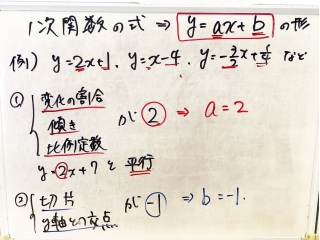 1次関数の式 ⇒ y=ax+b の形
例) y=2x+1, y=x-4, y=-3/2x+1/4 など
① 変化の割合
傾き が ② ⇒ a=2
比例定数
y=2x+7 と 平行
② 切片 が -1 ⇒ b=-1.
y軸との交点